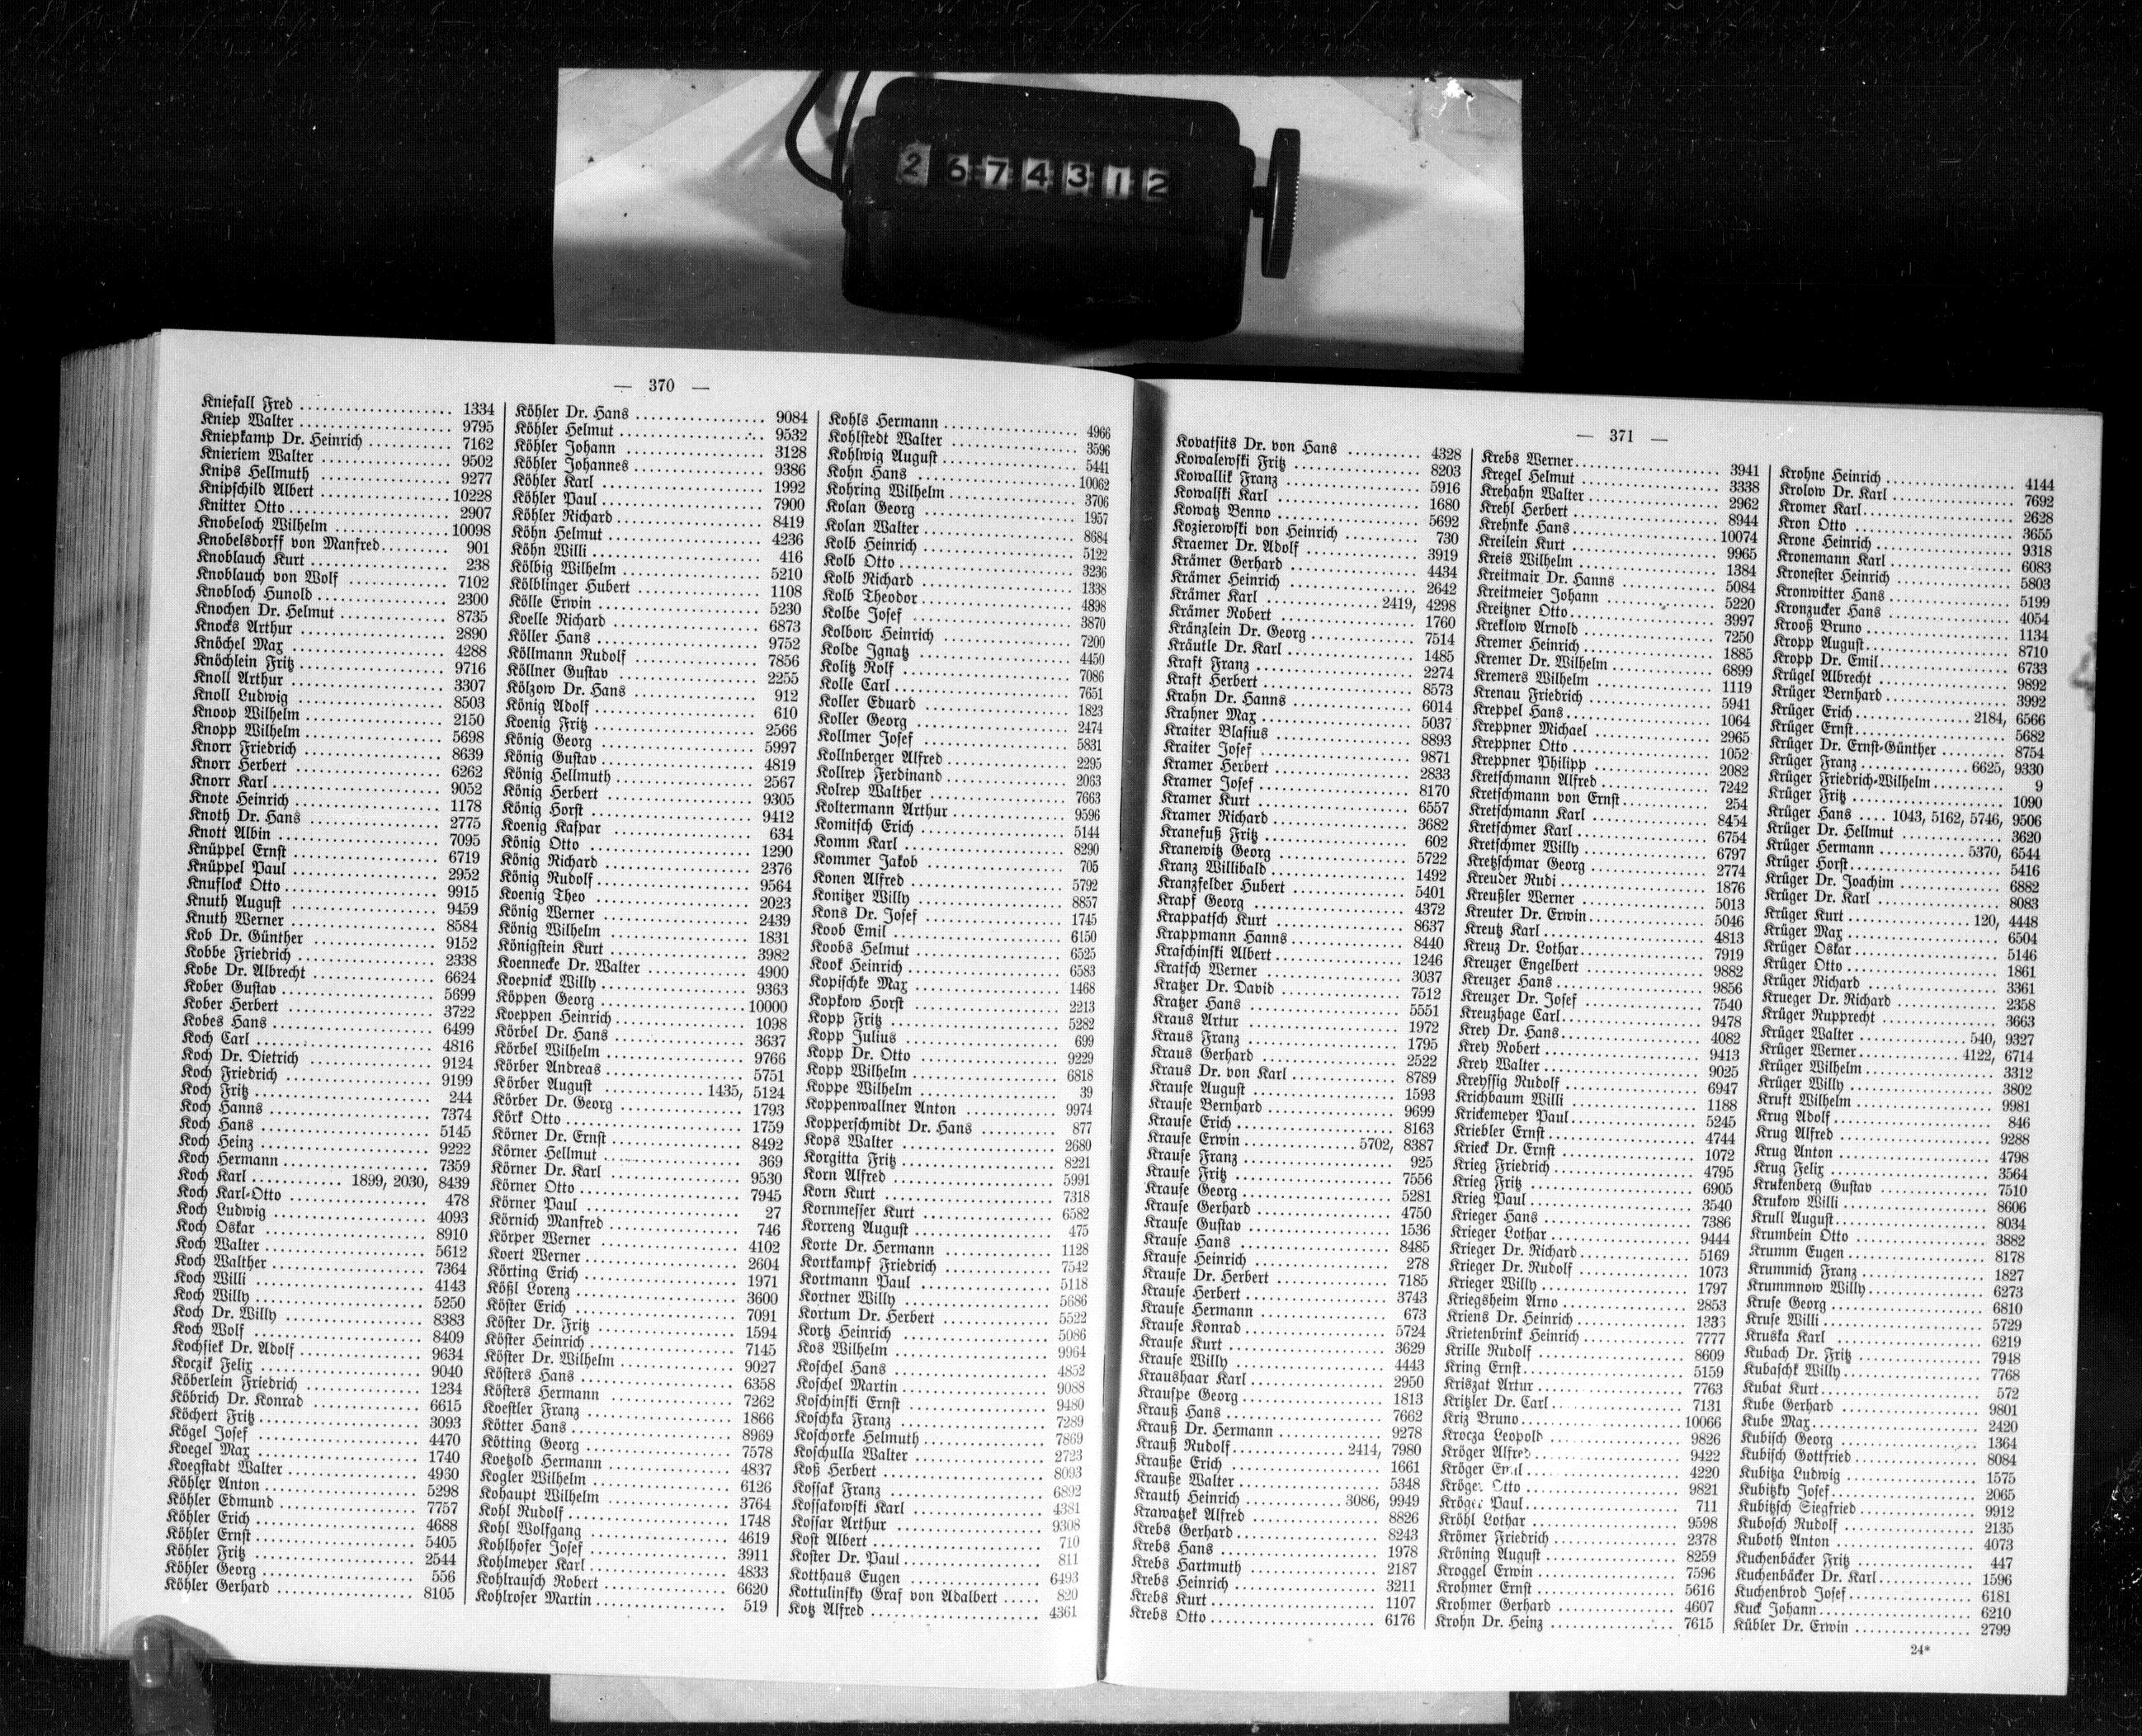 2674312
— 370 —
Kniefall Fred 1334
Kniep Walter 9795
Kniepkamp Dr. Heinrich 7162
Knieriem Walter 9502
Knips Hellmuth 9277
Knipschild Albert 10228
Knitter Otto 2907
Knobeloch Wilhelm 10098
Knobelsdorff von Manfred 901
Knoblauch Kurt 238
Knoblauch von Wolf 7102
Knobloch Hunold 2300
Knochen Dr. Helmut 8735
Knocks Arthur 2890
Knöchel Max 4288
Knöchlein Fritz 9716
Knoll Arthur 3307
Knoll Ludwig 8503
Knoop Wilhelm 2150
Knopp Wilhelm 5698
Knorr Friedrich 8639
Knorr Herbert 6262
Knorr Karl 9052
Knote Heinrich 1178
Knoth Dr. Hans 2775
Knott Albin 7095
Knüppel Ernst 6719
Knüppel Paul 2952
Knuflock Otto 9915
Knuth August 9459
Knuth Werner 8584
Kob Dr. Günther 9152
Kobbe Friedrich 2338
Kobe Dr. Albrecht 6624
Kober Gustav 5699
Kober Herbert 3722
Kobes Hans 6499
Koch Carl 4816
Koch Dr. Dietrich 9124
Koch Friedrich 9199
Koch Fritz 244
Koch Hanns 7374
Koch Hans 5145
Koch Heinz 9222
Koch Hermann 7359
Koch Karl 1899, 2030, 8439
Koch Karl-Otto 478
Koch Ludwig 4093
Koch Oskar 8910
Koch Walter 5612
Koch Walther 7364
Koch Willi 4143
Koch Willy 5250
Koch Dr. Willy 8383
Koch Wolf 8409
Kochsiek Dr. Adolf 9634
Koczik Felix 9040
Köberlein Friedrich 1234
Köbrich Dr. Konrad 6615
Köchert Fritz 3093
Kögel Josef 4470
Koegel Max 1740
Koegstadt Walter 4930
Köhler Anton 5298
Köhler Edmund 7757
Köhler Erich 4688
Köhler Ernst 5405
Köhler Fritz 2544
Köhler Georg 556
Köhler Gerhard 8105
Köhler Dr. Hans 9084
Köhler Helmut 9532
Köhler Johann 3128
Köhler Johannes 9386
Köhler Karl 1992
Köhler Paul 7900
Köhler Richard 8419
Köhn Helmut 4236
Köhn Willi 416
Kölbig Wilhelm 5210
Kölblinger Hubert 1108
Kölle Erwin 5230
Koelle Richard 6873
Köller Hans 9752
Köllmann Rudolf 7856
Köllner Gustav 2255
Kölzow Dr. Hans 912
König Adolf 610
Koenig Fritz 2566
König Georg 5997
König Gustav 4819
König Hellmuth 2567
König Herbert 9305
König Horst 9412
Koenig Kaspar 634
König Otto 1290
König Richard 2376
König Rudolf 9564
Koenig Theo 2023
König Werner 2439
König Wilhelm 1831
Königstein Kurt 3982
Koennecke Dr. Walter 4900
Koepnick Willy 9363
Köppen Georg 10000
Koeppen Heinrich 1098
Körbel Dr. Hans 3637
Körbel Wilhelm 9766
Körber Andreas 5751
Körber August 1435, 5124
Körber Dr. Georg 1793
Körk Otto 1759
Körner Dr. Ernst 8492
Körner Hellmut 369
Körner Dr. Karl 9530
Körner Otto 7945
Körner Paul 27
Körnich Manfred 746
Körper Werner 4102
Koert Werner 2604
Körting Erich 1971
Kößl Lorenz 3600
Köster Erich 7091
Köster Dr. Fritz 1594
Köster Heinrich 7145
Köster Dr. Wilhelm 9027
Kösters Hans 6358
Kösters Hermann 7262
Koestler Franz 1866
Kötter Hans 8969
Kötting Georg 7578
Koetzold Hermann 4837
Kogler Wilhelm 6126
Kohaupt Wilhelm 3764
Kohl Rudolf 1748
Kohl Wolfgang 4619
Kohlhofer Josef 3911
Kohlmeyer Karl 4833
Kohlrausch Robert 6620
Kohlroser Martin 519
Kohls Hermann 4966
Kohlstedt Walter 3596
Kohlwig August 5441
Kohn Hans 10062
Kohring Wilhelm 3706
Kolan Georg 1957
Kolan Walter 8684
Kolb Heinrich 5122
Kolb Otto 3236
Kolb Richard 1338
Kolb Theodor 4898
Kolbe Josef 3870
Kolbow Heinrich 7200
Kolde Ignatz 4450
Kolitz Rolf 7086
Kolle Carl 7651
Koller Eduard 1823
Koller Georg 2474
Kollmer Josef 5831
Kollnberger Alfred 2295
Kollrep Ferdinand 2063
Kolrep Walther 7663
Koltermann Arthur 9596
Komitsch Erich 5144
Komm Karl 8290
Kommer Jakob 705
Konen Alfred 5792
Konitzer Willy 8857
Kons Dr. Josef 1745
Koob Emil 6150
Koobs Helmut 6525
Kook Heinrich 6583
Kopischke Max 1468
Kopkow Horst 2213
Kopp Fritz 5282
Kopp Julius 699
Kopp Dr. Otto 9229
Kopp Wilhelm 6818
Koppe Wilhelm 39
Koppenwallner Anton 9974
Kopperschmidt Dr. Hans 877
Kops Walter 2680
Korgitta Fritz 8221
Korn Alfred 5991
Korn Kurt 7318
Kornmesser Kurt 6582
Korreng August 475
Korte Dr. Hermann 1128
Kortkampf Friedrich 7542
Kortmann Paul 5118
Kortner Willy 5686
Kortum Dr. Herbert 5522
Kortz Heinrich 5086
Kos Wilhelm 9964
Koschel Hans 4852
Koschel Martin 9088
Koschinski Ernst 9480
Koschka Franz 7289
Koschorke Helmuth 7869
Koschulla Walter 2723
Koß Herbert 8093
Kossak Franz 6892
Kossakowski Karl 4381
Kossar Arthur 9308
Kost Albert 710
Koster Dr. Paul 811
Kotthaus Eugen 6493
Kottulinsky Graf von Adalbert 820
Kotz Alfred 4361
— 371 —
Kovatsits Dr. von Hans 4328
Kowalewski Fritz 8203
Kowallik Franz 5916
Kowalski Karl 1680
Kowatz Benno 5692
Kozierowski von Heinrich 730
Kraemer Dr. Adolf 3919
Krämer Gerhard 4434
Krämer Heinrich 2642
Krämer Karl 2419, 4298
Krämer Robert 1760
Kränzlein Dr. Georg 7514
Kräutle Dr. Karl 1485
Kraft Franz 2274
Kraft Herbert 8573
Krahn Dr. Hanns 6014
Krahner Max 5037
Kraiter Blasius 8893
Kraiter Josef 9871
Kramer Herbert 2833
Kramer Josef 8170
Kramer Kurt 6557
Kramer Richard 3682
Kranefuß Fritz 602
Kranewitz Georg 5722
Kranz Willibald 1492
Kranzfelder Hubert 5401
Krapf Georg 4372
Krappatsch Kurt 8637
Krappmann Hanns 8440
Kraschinski Albert 1246
Kratsch Werner 3037
Kratzer Dr. David 7512
Kratzer Hans 5551
Kraus Artur 1972
Kraus Franz 1795
Kraus Gerhard 2522
Kraus Dr. von Karl 8789
Krause August 1593
Krause Bernhard 9699
Krause Erich 8163
Krause Erwin 5702, 8387
Krause Franz 925
Krause Fritz 7556
Krause Georg 5281
Krause Gerhard 4750
Krause Gustav 1536
Krause Hans 8485
Krause Heinrich 278
Krause Dr. Herbert 7185
Krause Herbert 3743
Krause Hermann 673
Krause Konrad 5724
Krause Kurt 3629
Krause Willy 4443
Kraushaar Karl 2950
Krauspe Georg 1813
Krauß Hans 7662
Krauß Dr. Hermann 9278
Krauß Rudolf 2414, 7980
Krauße Erich 1661
Krauße Walter 5348
Krauth Heinrich 3086, 9949
Krawatzek Alfred 8826
Krebs Gerhard 8243
Krebs Hans 1978
Krebs Hartmuth 2187
Krebs Heinrich 3211
Krebs Kurt 1107
Krebs Otto 6176
Krebs Werner 3941
Kregel Helmut 3338
Krehahn Walter 2962
Krehl Herbert 8944
Krehnke Hans 10074
Kreilein Kurt 9965
Kreis Wilhelm 1384
Kreitmair Dr. Hanns 5084
Kreitmeier Johann 5220
Kreitzner Otto 3997
Kreklow Arnold 7250
Kremer Heinrich 1885
Kremer Dr. Wilhelm 6899
Kremers Wilhelm 1119
Krenau Friedrich 5941
Kreppel Hans 1064
Kreppner Michael 2965
Kreppner Otto 1052
Kreppner Philipp 2082
Kretschmann Alfred 7242
Kretschmann von Ernst 254
Kretschmann Karl 8454
Kretschmer Karl 6754
Kretschmer Willy 6797
Kretzschmar Georg 2774
Kreuder Rudi 1876
Kreußler Werner 5013
Kreuter Dr. Erwin 5046
Kreutz Karl 4813
Kreuz Dr. Lothar 7919
Kreuzer Engelbert 9882
Kreuzer Hans 9856
Kreuzer Dr. Josef 7540
Kreuzhage Carl 9478
Krey Dr. Hans 4082
Krey Robert 9413
Krey Walter 9025
Kreyssig Rudolf 6947
Krichbaum Willi 1188
Krickemeyer Paul 5245
Kriebler Ernst 4744
Krieck Dr. Ernst 1072
Krieg Friedrich 4795
Krieg Fritz 6905
Krieg Paul 3540
Krieger Hans 7386
Krieger Lothar 9444
Krieger Dr. Richard 5169
Krieger Dr. Rudolf 1073
Krieger Willy 1797
Kriegsheim Arno 2853
Kriens Dr. Heinrich 1333
Krietenbrink Heinrich 7777
Krille Rudolf 8609
Kring Ernst 5159
Kriszat Artur 7763
Kritzler Dr. Carl 7131
Kriz Bruno 10066
Krocza Leopold 9826
Kröger Alfred 9422
Kröger 4220
Kröger Otto 9821
Kröger Paul 711
Kröhl Lothar 9598
Krömer Friedrich 2378
Kröning August 8259
Kroggel Erwin 7596
Krohmer Ernst 5616
Krohmer Gerhard 4607
Krohn Dr. Heinz 7615
Krohne Heinrich 4144
Krolow Dr. Karl 7692
Kromer Karl 2628
Kron Otto 3655
Krone Heinrich 9318
Kronemann Karl 6083
Kronester Heinrich 5803
Kronwitter Hans 5199
Kronzucker Hans 4054
Krooß Bruno 1134
Kropp August 8710
Kropp Dr. Emil 6733
Krügel Albrecht 9892
Krüger Bernhard 3992
Krüger Erich 2184, 6566
Krüger Ernst 5682
Krüger Dr. Ernst-Günther 8754
Krüger Franz 6625, 9330
Krüger Friedrich-Wilhelm 9
Krüger Fritz 1090
Krüger Hans 1043, 5162, 5746, 9506
Krüger Dr. Hellmut 3620
Krüger Hermann 5370, 6544
Krüger Horst 5416
Krüger Dr. Joachim 6882
Krüger Dr. Karl 8083
Krüger Kurt 120, 4448
Krüger Max 6504
Krüger Oskar 5146
Krüger Otto 1861
Krüger Richard 3361
Krueger Dr. Richard 2358
Krüger Rupprecht 3663
Krüger Walter 540, 9327
Krüger Werner 4122, 6714
Krüger Wilhelm 3312
Krüger Willy 3802
Kruft Wilhelm 9981
Krug Adolf 846
Krug Alfred 9288
Krug Anton 4798
Krug Felix 3564
Krukenberg Gustav 7510
Krukow Willi 8606
Krull August 8034
Krumbein Otto 3882
Krumm Eugen 8178
Krummich Franz 1827
Krummnow Willy 6273
Kruse Georg 6810
Kruse Willi 5729
Kruska Karl 6219
Kubach Dr. Fritz 7948
Kubaschk Willy 7768
Kubat Kurt 572
Kube Gerhard 9801
Kube Max 2420
Kubisch Georg 1364
Kubisch Gottfried 8084
Kubitza Ludwig 1575
Kubitzky Josef 2065
Kubitzsch Siegfried 9912
Kubosch Rudolf 2135
Kuboth Anton 4073
Kuchenbäcker Fritz 447
Kuchenbäcker Dr. Karl 1596
Kuchenbrod Josef 6181
Kuck Johann 6210
Kübler Dr. Erwin 2799
24*